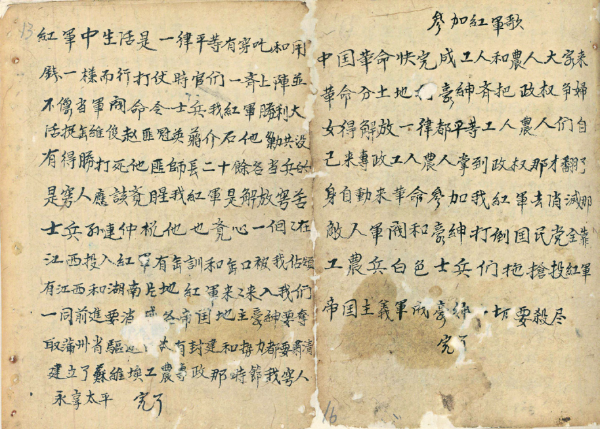 13
紅軍中生活是一律平等有穿吃和用
錢一樣而行打伏時官們一齐上陣並
不像当軍閥命令士兵我紅軍勝利大
活捉 維俊赵匪冠英蔣介石他勦共没
有得勝打死他匪師長二十餘名当兵的
是窮人應該竟醒我紅軍是解放窮苦
士兵孙連仲 他也竟心一個 在
江西投入紅軍有 訓和 口被我佔領
有江西和湖南 地紅軍来 来入我們
一同前進要消 帝国地主豪紳要奪
取 州省驅 有封建和 力都要肅清
建立了蘇維埃工農專政那時節我窮人
永享太平 完了
參加紅軍歌
中国革命快完成工人和農人大家来
革命分土地打豪紳齐把政权爭婦
女得解放一律都平等工人農人們自
己来專政工人農人掌到政权那才翻了
身自動来革命參加我紅軍去消滅那
敵人軍閥和豪紳打倒国民党全靠
工農兵白色士兵們拖搶投紅軍
帝国主義軍閥豪绅一切要殺尽
完了
16